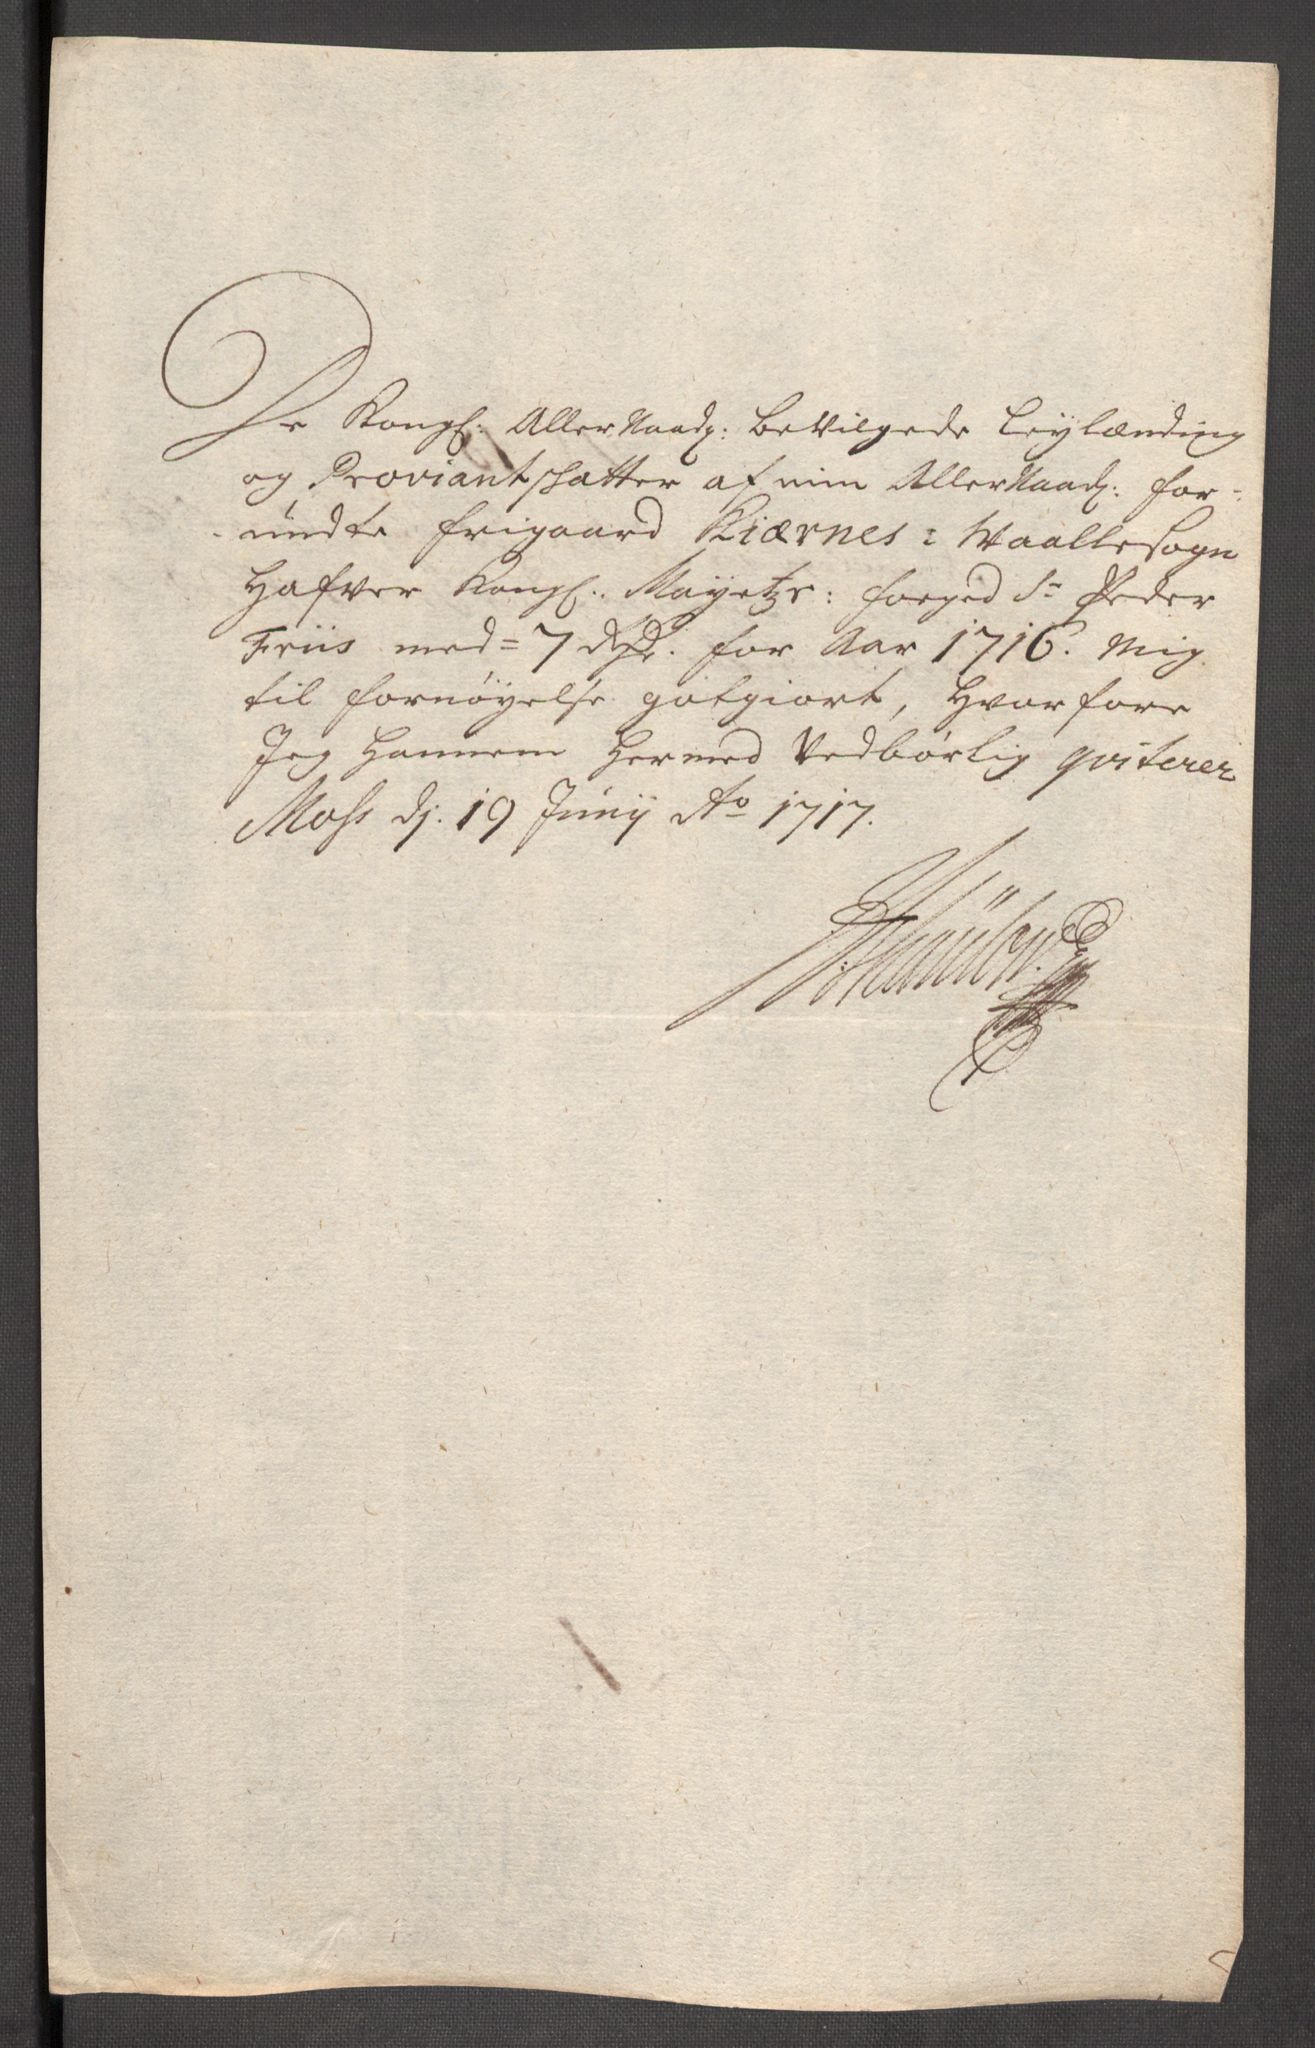 De Kongl: AllerNaadg: beVilgede Leylænding
og Proviant schatter af min AllerNaadg: for-
undte frigaard Kiærnes i Waalle Sogn
Hafver Kongl: Mayetz: foeged Sr Peder
Friis med = 7 Rdr. for Aar 1716. Mig
til fornøyelse gotgiort, hvorfore
Jeg hannem hermed Vedbørlig qviterer
Moss dj. 19 Junij Ao 1717.